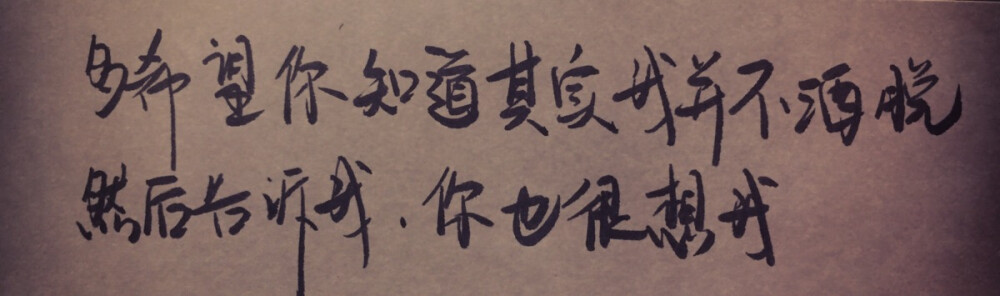 多希望你知道其实我并不洒脱
然后告诉我.你也很想我